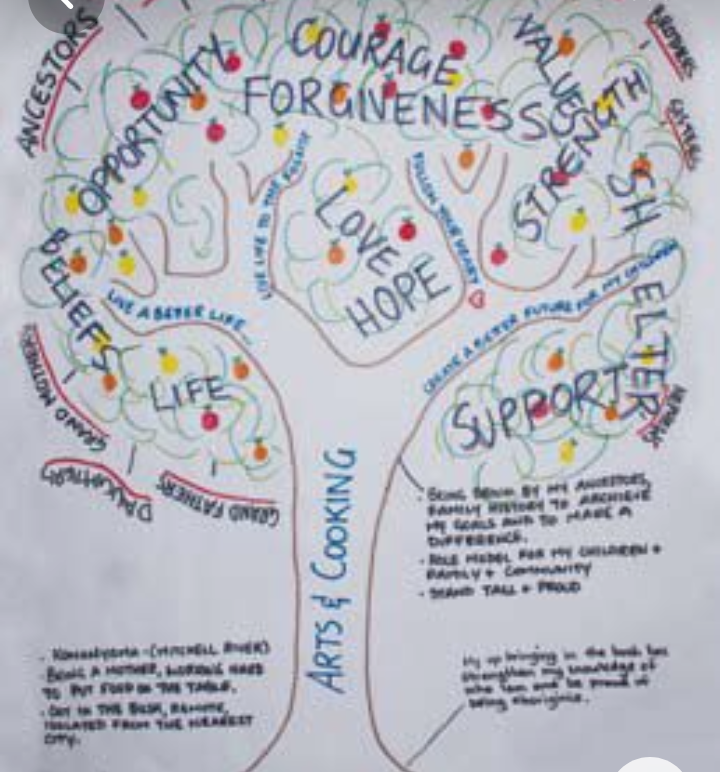 ANCESTORS
OPPORTUNITY
COURAGE
FORGIVENESS
VALUES
STRENGTH
BROTHERS
SISTERS
SHELTER
BELIEFS
LIVE LIFE TO THE FULLEST
FOLLOW YOUR HEART
LOVE
HOPE
LIVE A BETTER LIFE...
CREATE A BETTER FUTURE FOR MY CHILDREN
LIFE
SUPPORT
GRAND MOTHERS
DAUGHTERS
GRAND FATHERS
ARTS & COOKING
· BEING DRIVEN BY MY ANCESTORS,
FAMILY HISTORY TO ARCHIEVE
MY GOALS AND TO MAKE A
DIFFERENCE.
· ROLE MODEL FOR MY CHILDREN +
FAMILY + COMMUNITY
· STAND TALL + PROUD
(MITCHELL RIVER)
BEING A MOTHER, WORKING HARD
TO PUT FOOD ON THE TABLE.
· OUT IN THE BUSH, REMOTE,
ISOLATED FROM THE NEAREST
CITY.
My up bringing in the bush has
strengthen my knowledge of
who I am and be proud of
being Aboriginie.